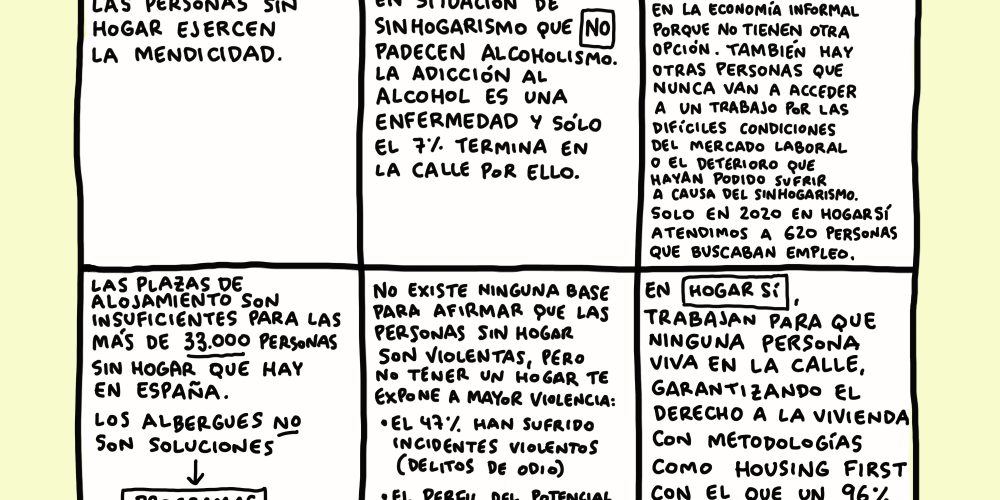 LAS PERSONAS SIN
HOGAR EJERCEN
LA MENDICIDAD.
EN SITUACIÓN DE
SINHOGARISMO QUE NO
PADECEN ALCOHOLISMO.
LA ADICCIÓN AL
ALCOHOL ES UNA
ENFERMEDAD Y SÓLO
EL 7% TERMINA EN
LA CALLE POR ELLO.
EN LA ECONOMÍA INFORMAL
PORQUE NO TIENEN OTRA
OPCIÓN. TAMBIÉN HAY
OTRAS PERSONAS QUE
NUNCA VAN A ACCEDER
A UN TRABAJO POR LAS
DIFÍCILES CONDICIONES
DEL MERCADO LABORAL
O EL DETERIORO QUE
HAYAN PODIDO SUFRIR
A CAUSA DEL SINHOGARISMO.
SOLO EN 2020 EN HOGARSÍ
ATENDIMOS A 620 PERSONAS
QUE BUSCABAN EMPLEO.
LAS PLAZAS DE
ALOJAMIENTO SON
INSUFICIENTES PARA LAS
MÁS DE 33.000 PERSONAS
SIN HOGAR QUE HAY
EN ESPAÑA.
LOS ALBERGUES NO
SON SOLUCIONES
PROGRAMAS
NO EXISTE NINGUNA BASE
PARA AFIRMAR QUE LAS
PERSONAS SIN HOGAR
SON VIOLENTAS, PERO
NO TENER UN HOGAR TE
EXPONE A MAYOR VIOLENCIA:
•EL 47% HAN SUFRIDO
INCIDENTES VIOLENTOS
(DELITOS DE ODIO)
•EL PERFIL DEL POTENCIAL
EN HOGAR SÍ,
TRABAJAN PARA QUE
NINGUNA PERSONA
VIVA EN LA CALLE,
GARANTIZANDO EL
DERECHO A LA VIVIENDA
CON METODOLOGÍAS
COMO HOUSING FIRST
CON EL QUE UN 96%